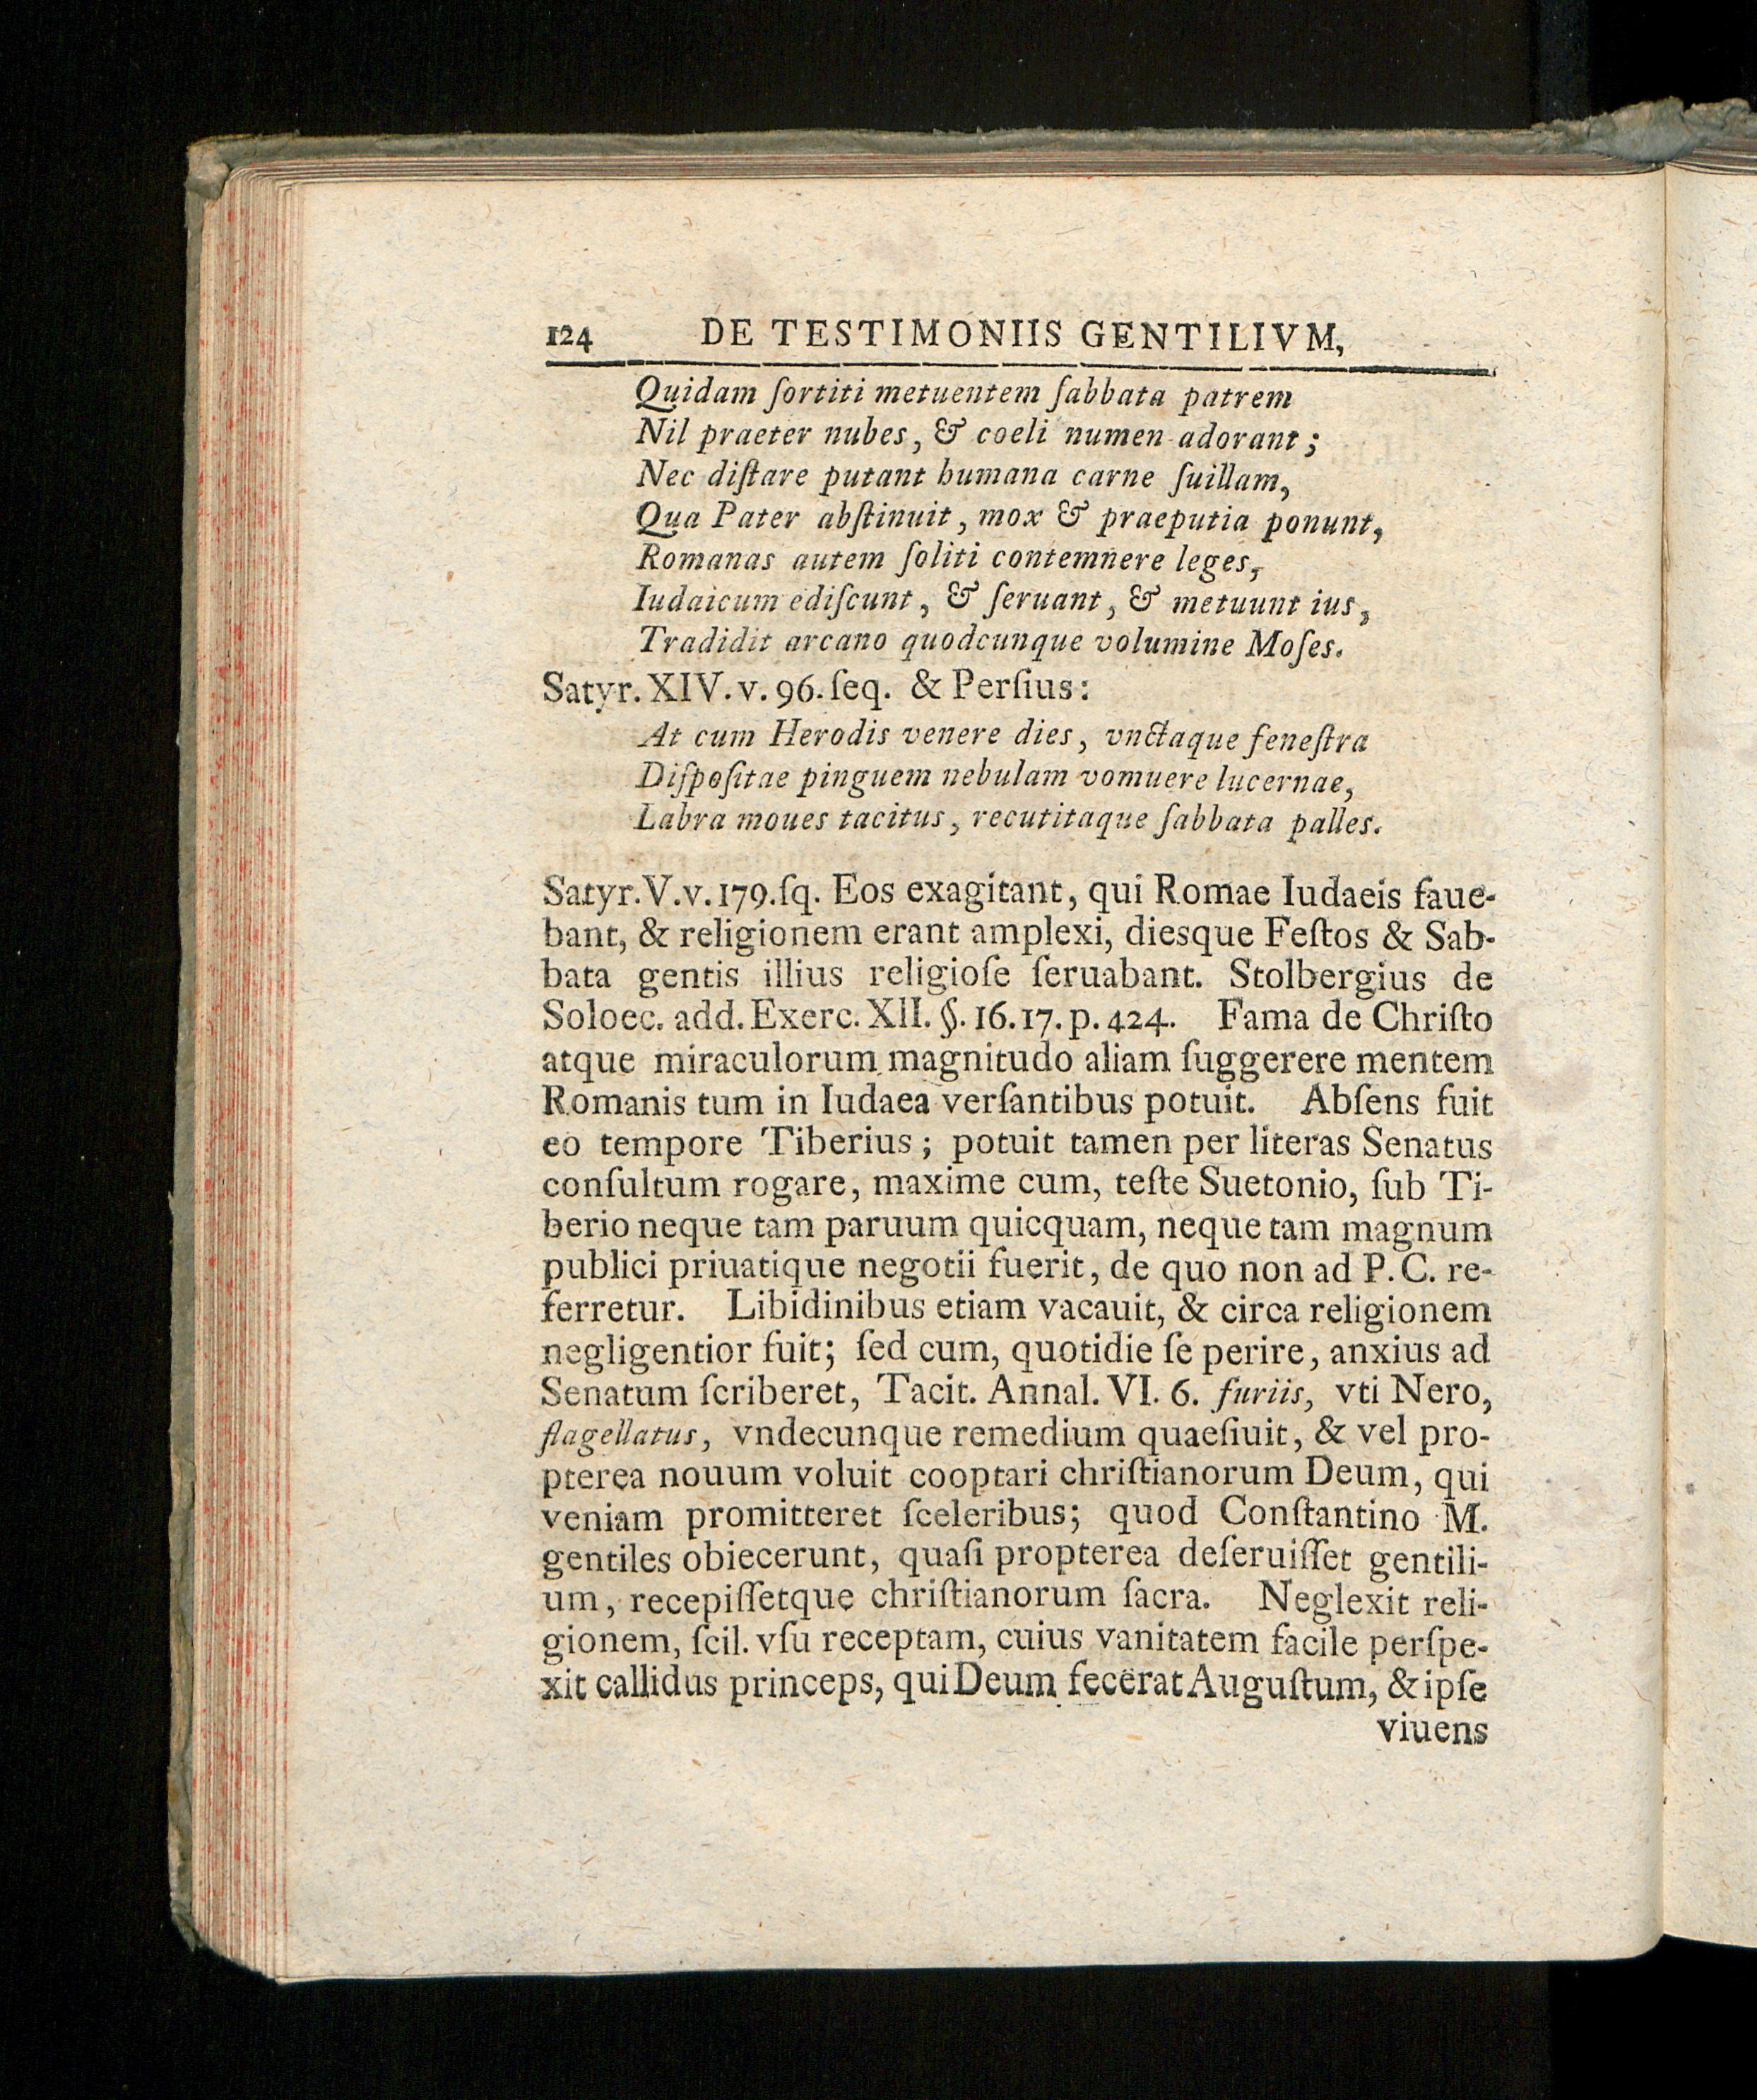 124 DE TESTIMONIIS GENTILIVM,
Quidam ſortiti metuentem ſabbata patrem
Nil praeter nubes, & coeli numen adorant;
Nec diſtare putant humana carne ſuillam,
Qua Pater abſtinuit, mox & praeputia ponunt,
Romanas autem ſoliti contemnere leges,
Iudaicum ediſcunt, & ſeruant, & metuunt ius,
Tradidit arcano quodcunque volumine Moſes.
Satyr. XIV. v. 96. ſeq. & Perſius:
At cum Herodis venere dies, vnctaque feneſtra
Diſpoſitae pinguem nebulam vomuere lucernae,
Labra moues tacitus, recutitaque ſabbata palles.
Satyr. V. v. 179. ſq. Eos exagitant, qui Romae Iudaeis faue-
bant, & religionem erant amplexi, diesque Feſtos & Sab-
bata gentis illius religioſe ſeruabant. Stolbergius de
Soloec. add. Exerc. XII. §. 16. 17. p. 424. Fama de Chriſto
atque miraculorum magnitudo aliam ſuggerere mentem
Romanis tum in Iudaea verſantibus potuit. Abſens fuit
eo tempore Tiberius; potuit tamen per literas Senatus
conſultum rogare, maxime cum, teſte Suetonio, ſub Ti-
berio neque tam paruum quicquam, neque tam magnum
publici priuatique negotii fuerit, de quo non ad P. C. re-
ferretur. Libidinibus etiam vacauit, & circa religionem
negligentior fuit; ſed cum, quotidie ſe perire, anxius ad
Senatum ſcriberet, Tacit. Annal. VI. 6. furiis, vti Nero,
flagellatus, vndecunque remedium quaeſiuit, & vel pro-
pterea nouum voluit cooptari chriſtianorum Deum, qui
veniam promitteret ſceleribus; quod Conſtantino M.
gentiles obiecerunt, quaſi propterea deſeruiſſet gentili-
um, recepiſſetque chriſtianorum ſacra. Neglexit reli-
gionem, ſcil. vſu receptam, cuius vanitatem facile perſpe-
xit callidus princeps, qui Deum fecerat Auguſtum, & ipſe
viuens